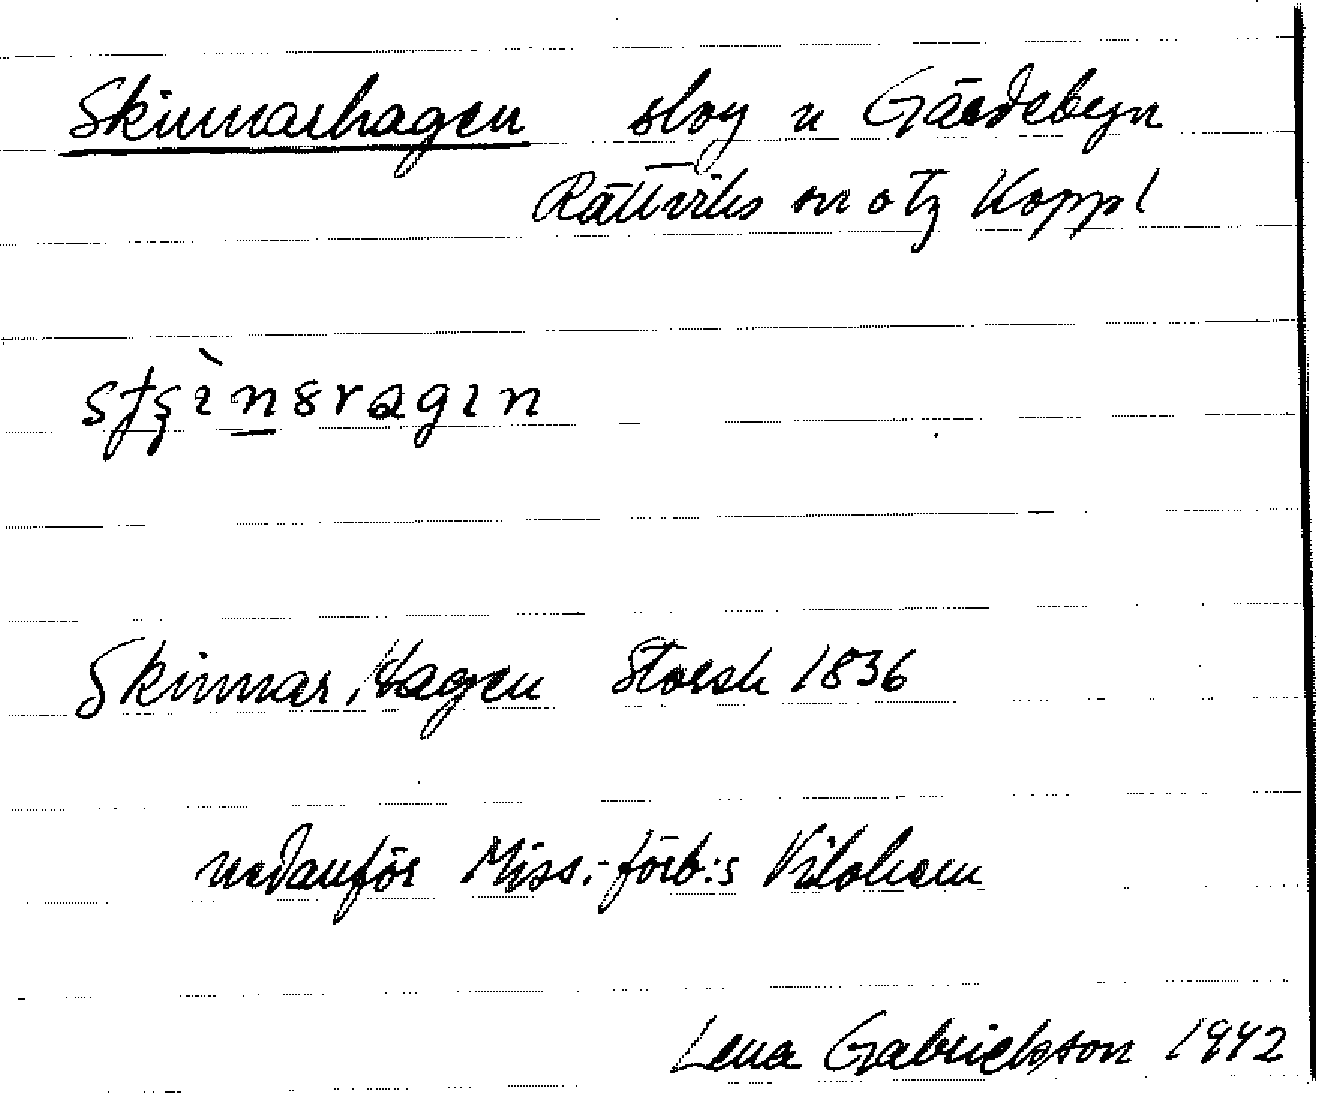 Skinnarhagen slog n Gärdebyn
Rättviks sn o tg Koppl
Skinnar Hagen Storsk 1836
nedanför Miss.-förb:s Vilohem
Lena Gabrielsson 1942